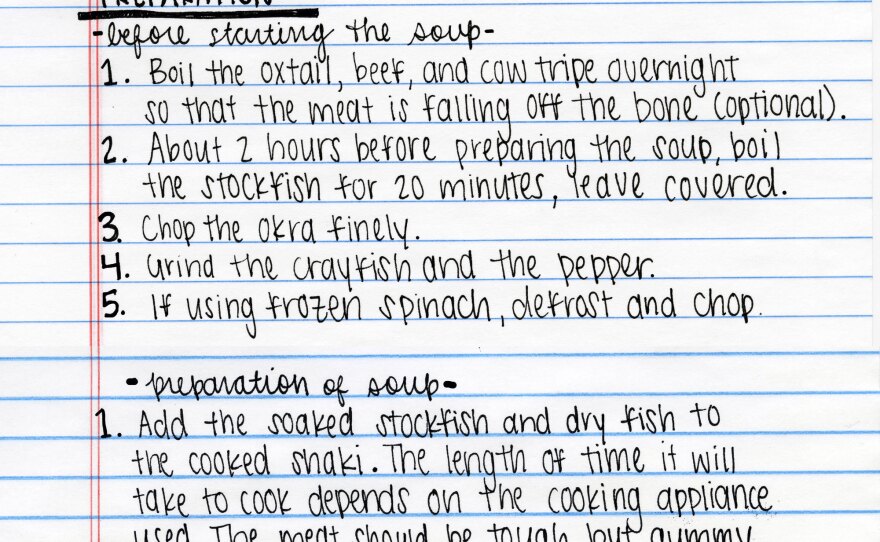 PREPARATION
-before starting the soup-
1. Boil the oxtail, beef, and cow tripe overnight
so that the meat is falling off the bone (optional).
2. About 2 hours before preparing the soup, boil
the stockfish for 20 minutes, leave covered.
3. Chop the okra finely.
4. Grind the crayfish and the pepper.
5. If using frozen spinach, defrost and chop.
-preparation of soup-
1. Add the soaked stockfish and dry fish to
the cooked shaki. The length of time it will
take to cook depends on the cooking appliance
used. The meat should be tough but gummy